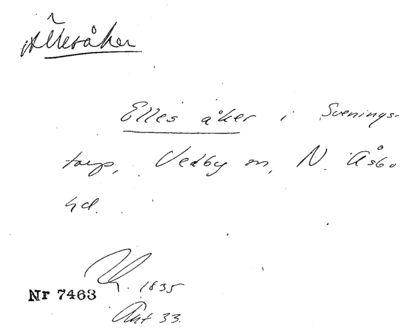 Ällesåker
Elles åker i Svenings-
torp, Vedby sn, N. Åsbo
hd.
1835
Nr 7463
Akt 33.